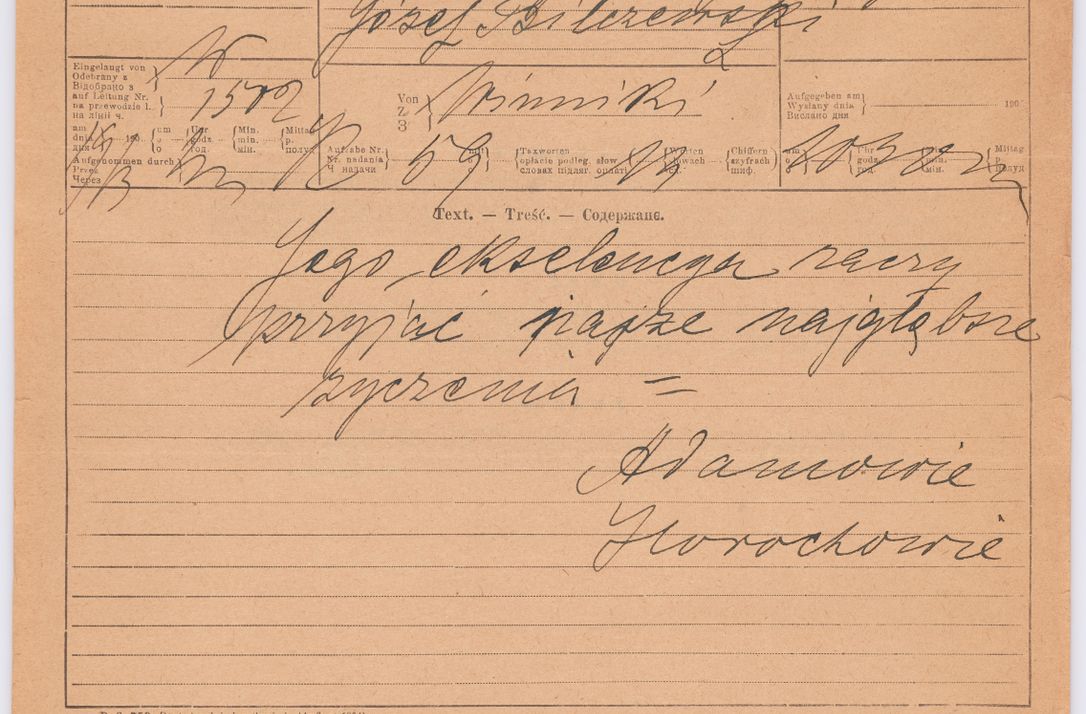 Józef Bilczewski
Eingelangt von
Odebrany z
Відобрано з
auf Leitung Nr.
na przewodzie l.
на лінії ч.
1502
Von
Z
З
Winniki
Aufgegeben am
Wysłany dnia
Вислано дня
190
am
dnia
дня
190
um
o
о
Uhr
godz.
год.
Min.
min.
мін.
Mittag
p.
полуд.
Aufgenommen durch
Przez
Через
Aufgabe Nr.
Nr. nadania
Ч. надачи
59
mit
Taxworten
opłacie podleg. słow.
словах підляг. оплаті
Worten
słowach
Chiffern
szyfrach
шиф.
um
o
о
Uhr
godz.
год.
Min.
min.
мін.
Mittag
p.
полуд.
Text. — Treść. — Содержанє.
Jego ekselencya raczy
przyjąć nasze najgłębsze
życzenia =
Adamowie
Horochowie